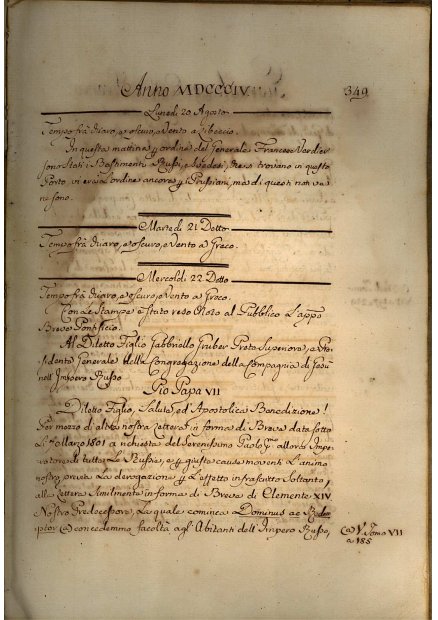 Anno MDCCCIV
349
Lunedì 20 Agosto
Tempo frà chiaro, e oscuro, e Vento a Libeccio.
In questa mattina per ordine del Generale Francese Verdier
sono stati i Bastimenti Russi, e Svedesi, che si trovano in questo
Porto vi era l'ordine ancora per i Prussiani, ma di questi non ve
ne sono.
Martedì 21 Detto
Tempo frà chiaro, e oscuro, e Vento a Greco.
Mercoldì 22 Detto
Tempo frà chiaro, e oscuro, e Vento a Greco.
Con le Stampe è stato reso noto al Pubblico l'app.
Breve Pontificio.
Al Diletto Figlio Gabbriello Gruber Preto Superiore, e Pre-
sidente Generale della Congregazione della Compagnia di Gesù
nell'Impero Russo
Pio Papa VII
Diletto Figlio, Salute, ed Apostolica Benedizione!
Per mezzo di altra nostra Lettera in forma di Breve data sotto
li Marzo 1801 a richiesta del Serenissimo Paolo allora Impe-
ratore di tutte le Russie, e per giuste cause moventi l'animo
nostro, previa la derogazione per l'effetto infrascritto soltanto,
alla Lettera similmente in forma di Breve di Clemente XIV
Nostro Predecessore, la quale comincia Dominus ac Redem-
ptor (a) concedemmo facoltà agl'Abitanti dell'Impero Russo,
(a) V. Tomo VII
a 185